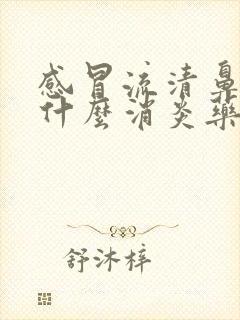 感冒流清鼻
什麼消炎藥
舒沐梓